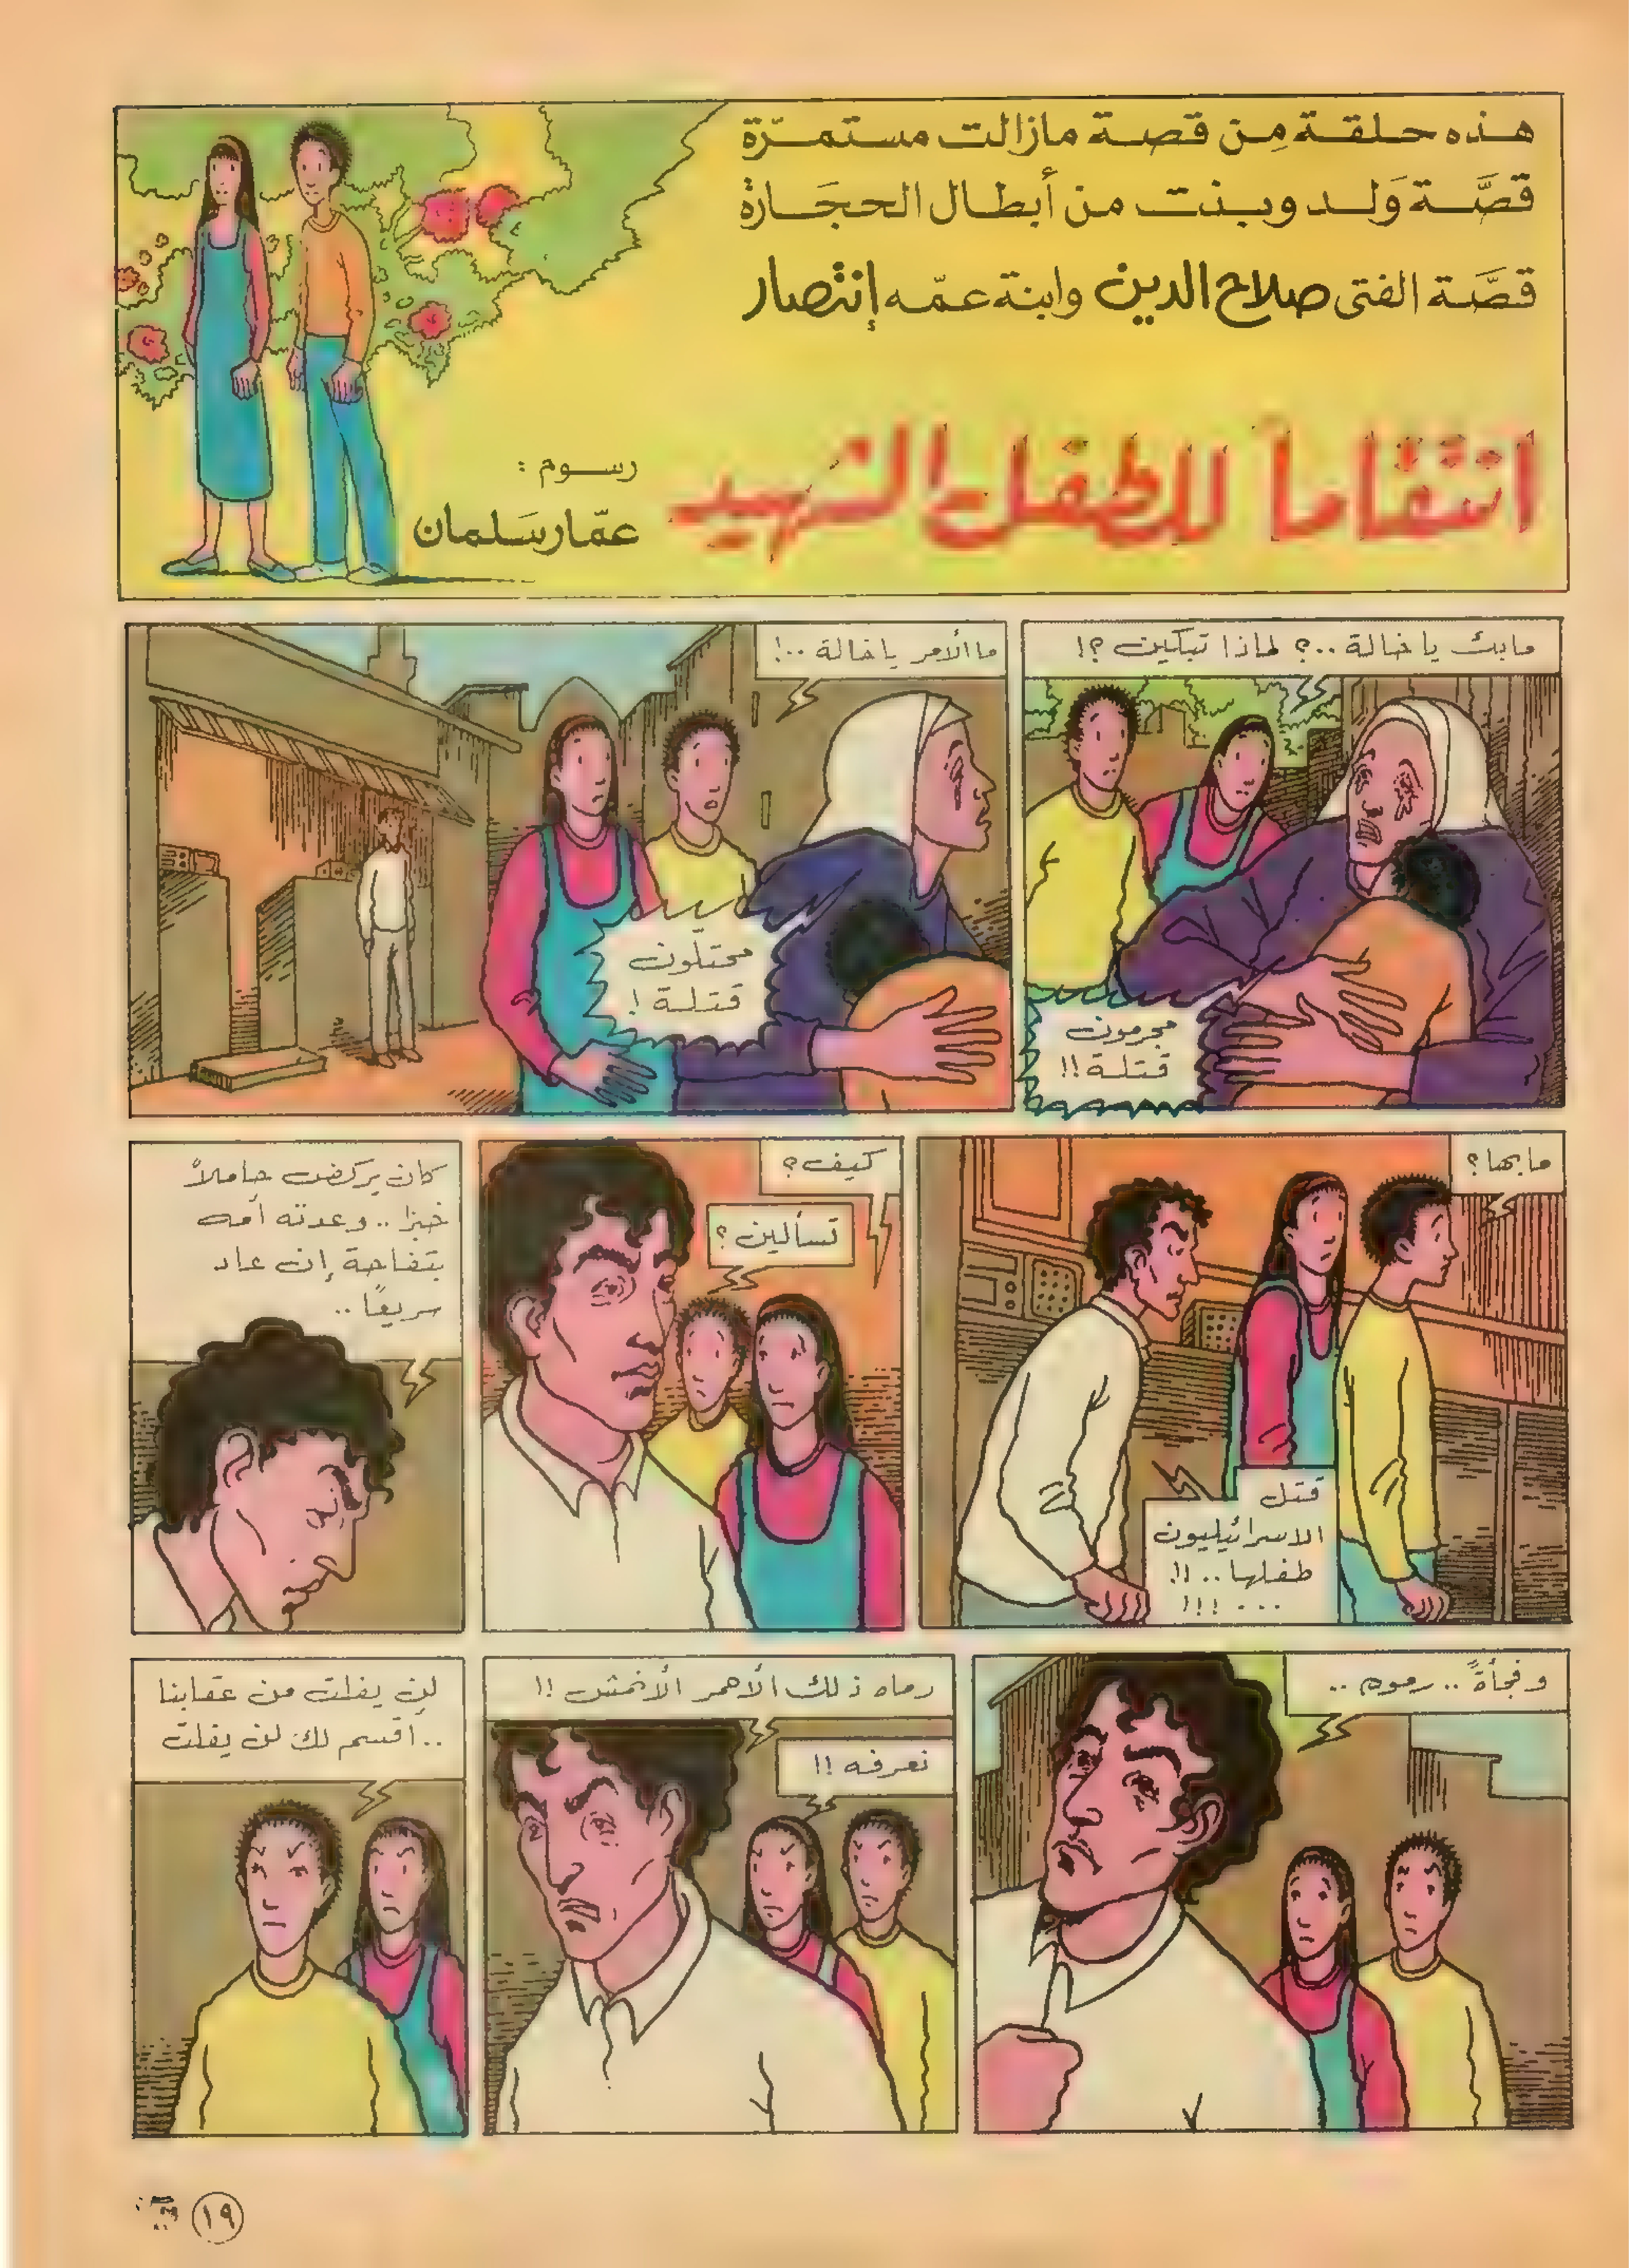 هذه حلقة مِن قصة مازالت مستمرّة
قصَّة وَلد وبنت من أبطال الحجَارة
قصَّة الفتى صلاح الدين وابنة عمّه إنتصار
انتقاماً للطفل الشهيد
رسوم :
عمّار سَلمان
مابك يا خالة ..؟ لماذا تبكين ؟!
مجرمون
قتلة !!
ما الأمر يا خالة ..!
محتلون
قتلة !
مابها ؟
قتل
الاسرائيليون
طفلها .. !!
... !!!
كيف ؟
تسألين ؟
كان يركض حاملاً
خبزا .. وعدته أمه
بتفاحة إن عاد
سريعًا ..
وفجأةً .. رموه ..
رماه ذلك الأحمر الأنمش !!
نعرفه !!
لن يفلت من عقابنا
.. أقسم لك لن يفلت
١٩